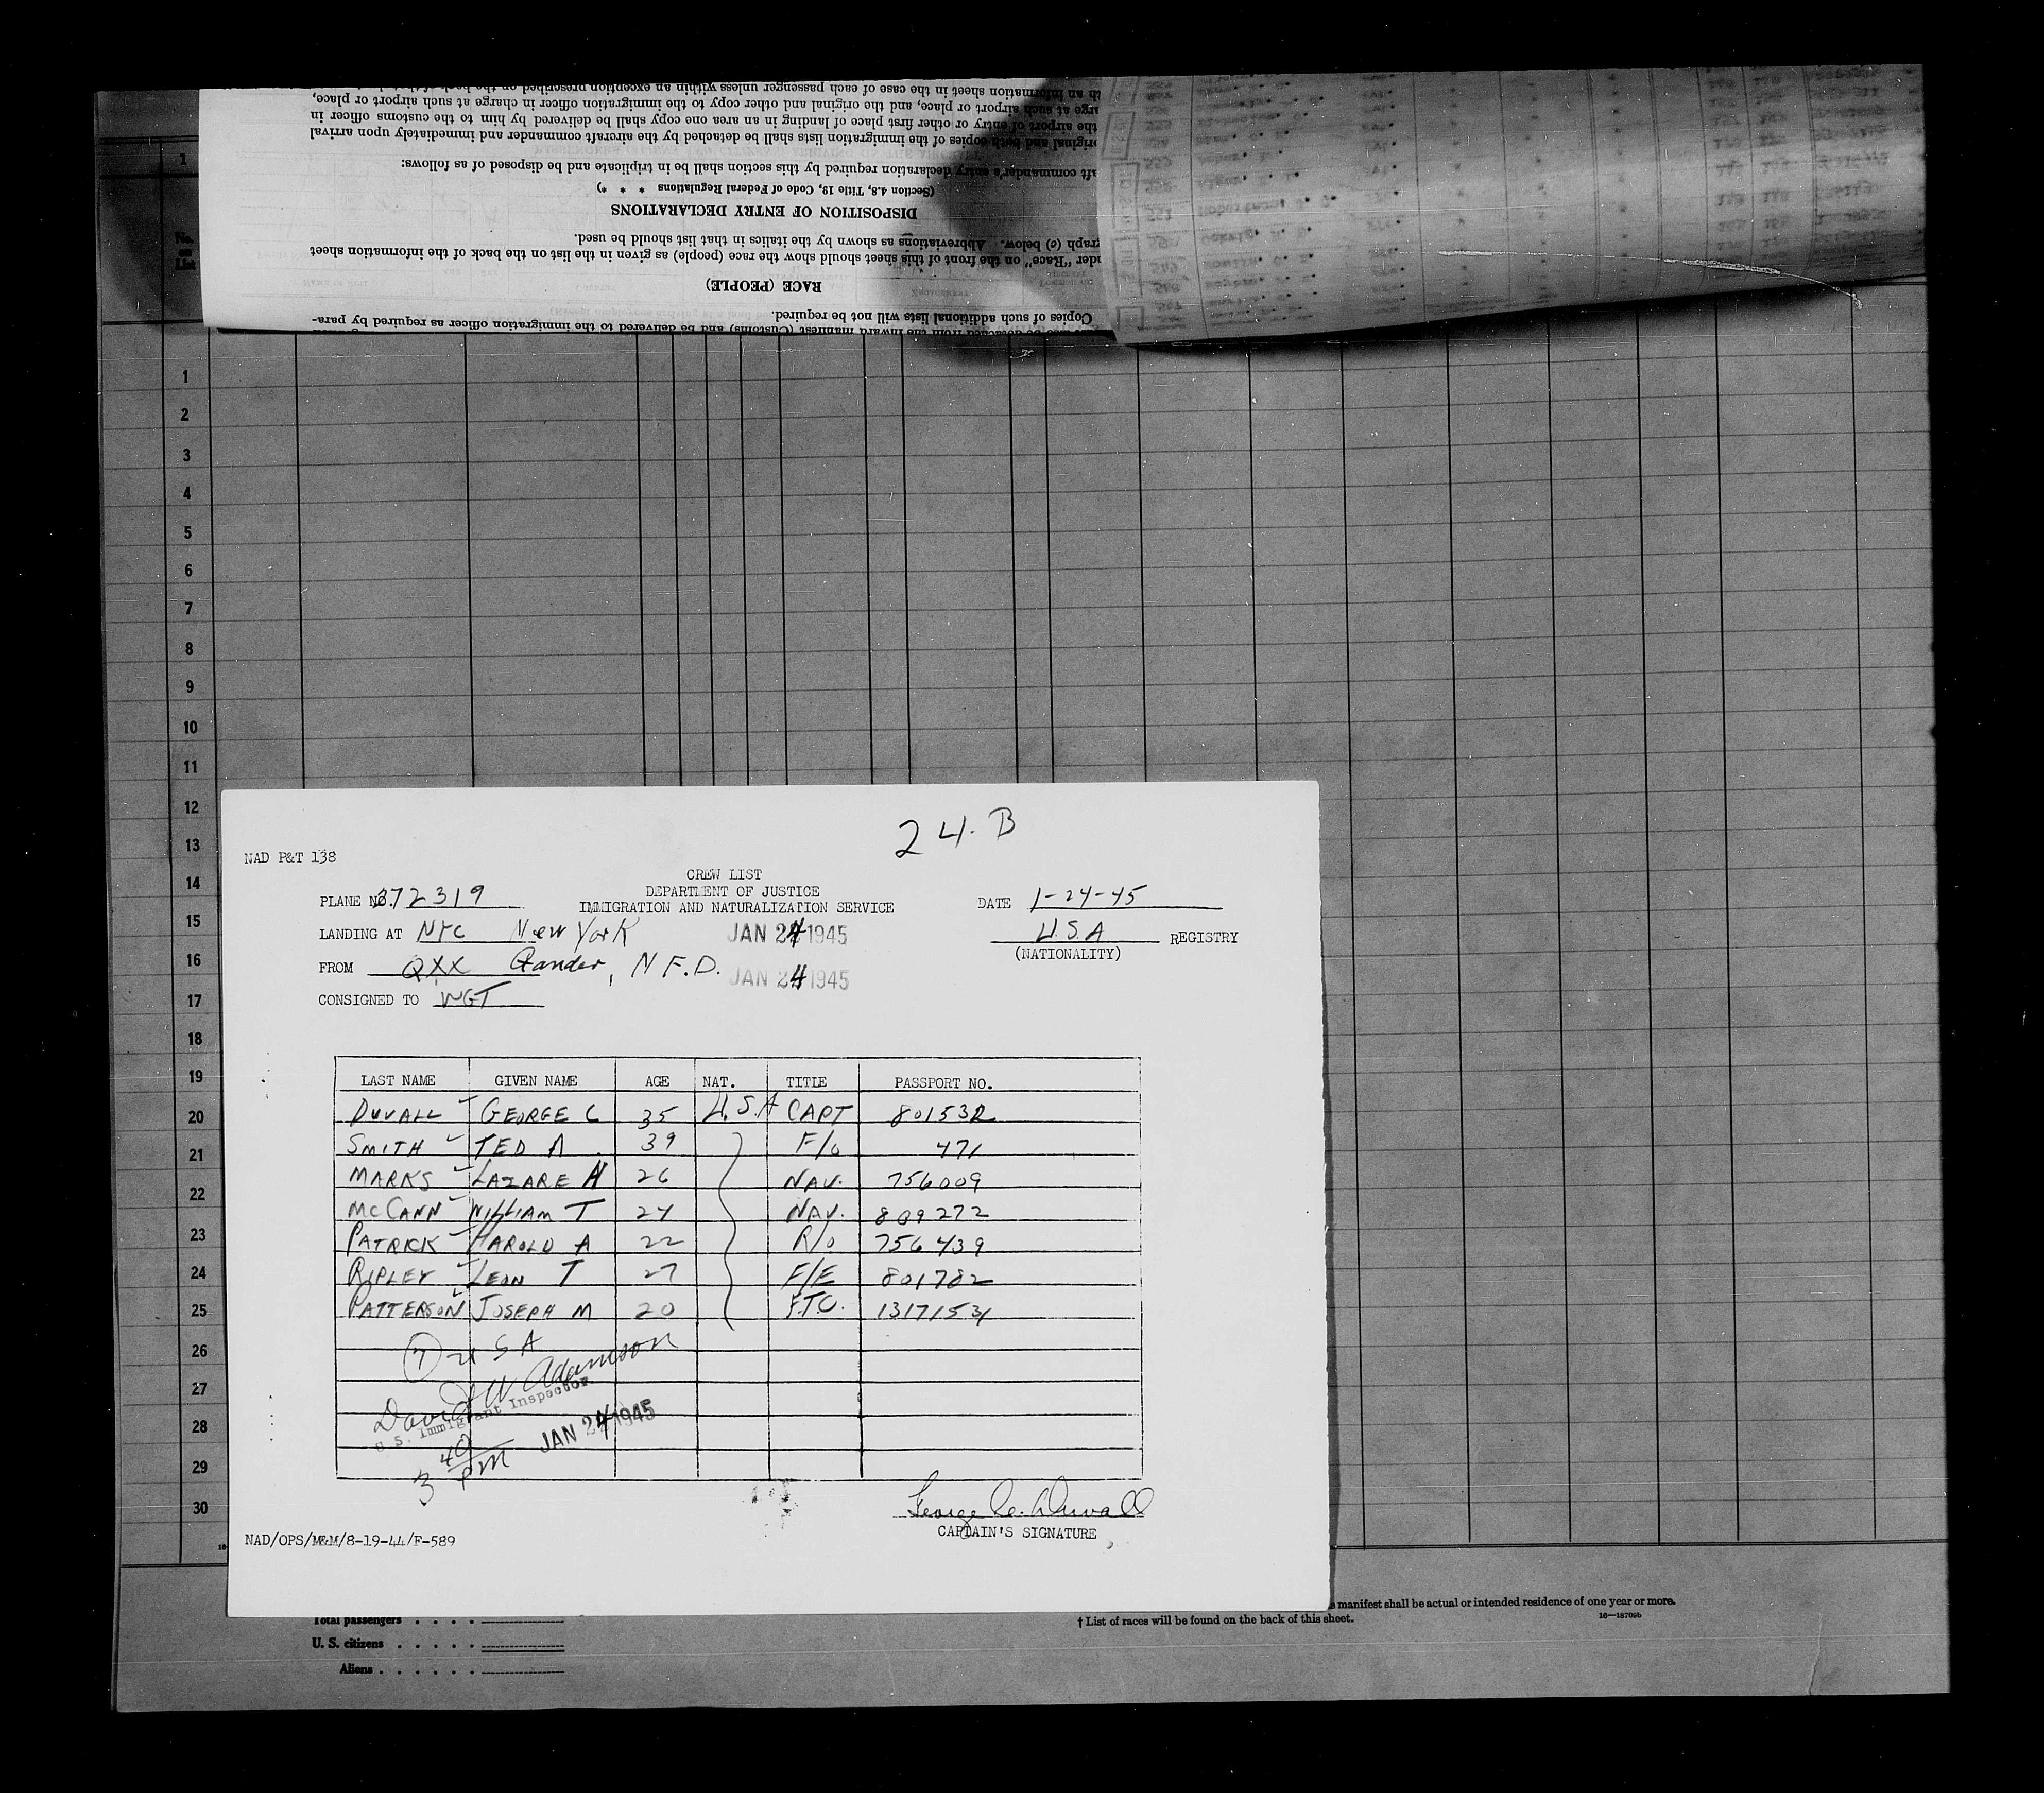 th an information sheet in the case of each passenger unless within an exception prescribed on the back of
arge at such airport or place, and the original and other copy to the immigration officer in charge at such airport or place,
the airport of entry or other first place of landing in an area one copy shall be delivered by him to the customs officer in
original and both copies of the immigration lists shall be detached by the aircraft commander and immediately upon arrival
aft commander's entry declaration required by this section shall be in triplicate and be disposed of as follows:
(Section 4.8, Title 19, Code of Federal Regulations * * *)
DISPOSITION OF ENTRY DECLARATIONS
graph (c) below. Abbreviations as shown by the italics in that list should be used.
der "Race" on the front of this sheet should show the race (people) as given in the list on the back of the information sheet
RACE (PEOPLE)
Copies of such additional lists will not be required.
detached from the inward manifest (Customs) and be delivered to the immigration officer as required by para-
1
No. on List
1
2
3
4
5
6
7
8
9
10
11
12
13
14
15
16
17
18
19
20
21
22
23
24
25
26
27
28
29
30
24. B
NAD P&T 138
CREW LIST
DEPARTMENT OF JUSTICE
IMMIGRATION AND NATURALIZATION SERVICE
PLANE NO. 372319
DATE 1-24-45
LANDING AT NYC New York JAN 24 1945
U.S.A REGISTRY
(NATIONALITY)
FROM QXX Gander, N F.D. JAN 24 1945
CONSIGNED TO WGT
LAST NAME GIVEN NAME AGE NAT. TITLE PASSPORT NO.
DUVALL GEORGE C 35 U.S.A CAPT 801532
SMITH TED A 39 F/O 471
MARKS LAZARE H 26 NAV. 756009
MCCANN WILLIAM T 24 NAV. 809272
PATRICK HAROLD A 22 R/O 756439
RIPLEY LEON T 27 F/E 801782
PATTERSON JOSEPH M 20 F.T.C. 13171531
7 USA
David W Adamson
U. S. Immigrant Inspector
JAN 24 1945
3 40 PM
George C. Duvall
CAPTAIN'S SIGNATURE
NAD/OPS/M&M/8-19-44/F-589
Total passengers . . . .
U. S. citizens . . . . .
Aliens . . . . . .
s manifest shall be actual or intended residence of one year or more.
† List of races will be found on the back of this sheet.
16—18709b